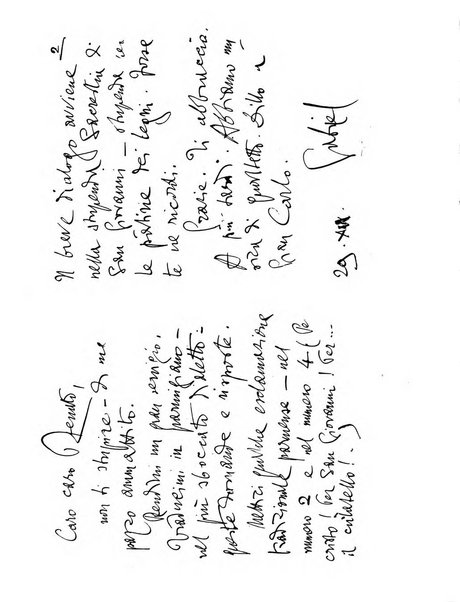 Caro caro Renato,
non ti stupire – di me
pazzo ammattito.
Rendimi un gran servigio,
traducimi in parmigiano –
nel più sboccato dialetto –
queste domande e risposte.
Mettici qualche esclamazione
tradizionale parmense – nel
numero 2 e nel numero 4 (Per
cristo! Per San Giovanni! Per...
il culatello!..)
Il breve dialogo avviene 2
nella stupenda Sacrestia di
San Giovanni – stupenda per
la patina dei legni. Forse
te ne ricordi.
Grazie. Ti abbraccio.
A più tardi. Abbiamo un'
ora di quartetto. Dillo a
Gian Carlo.
Gabriel
29.